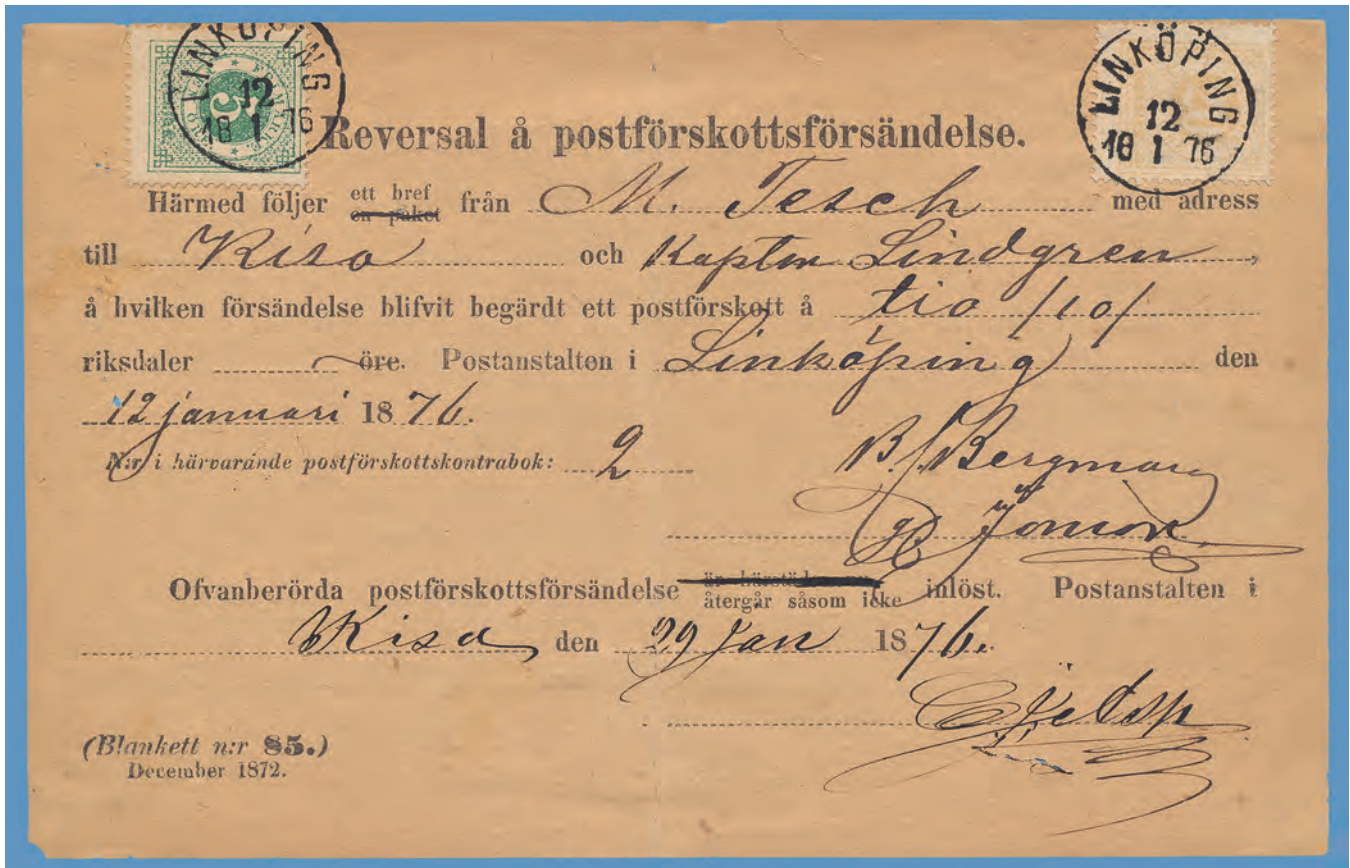 LINKÖPING
12
18 1 76
LINKÖPING
12
18 1 76
3
Reversal å postförskottsförsändelse.
Härmed följer ett bref en paket från M. Tesch med adress
till Kisa och Kapten Lindgren,
å hvilken försändelse blifvit begärdt ett postförskott å tio /10/
riksdaler öre. Postanstalten i Linköping den
12 januari 1876.
N:r i härvarande postförskottskontrabok: 2
Bergman
Ofvanberörda postförskottsförsändelse återgår såsom icke inlöst. Postanstalten i
Kisa den 29 Jan 1876.
(Blankett n:r 85.)
December 1872.